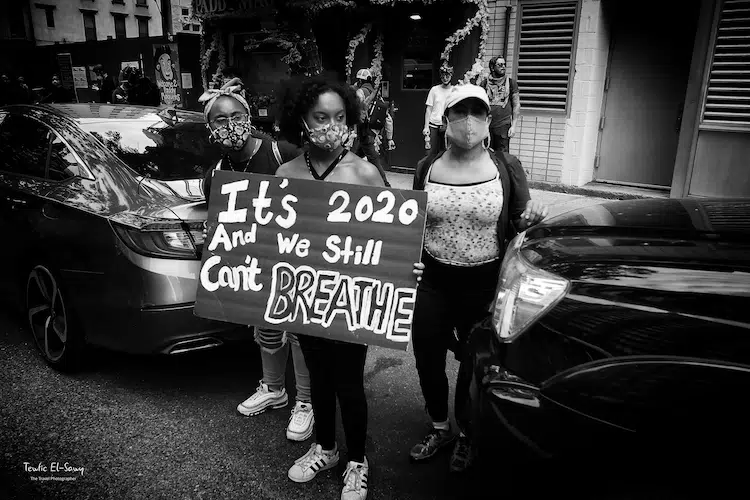 It's 2020
And We Still
Can't BREATHE
Tewfic El-Sawy
The Travel Photographer